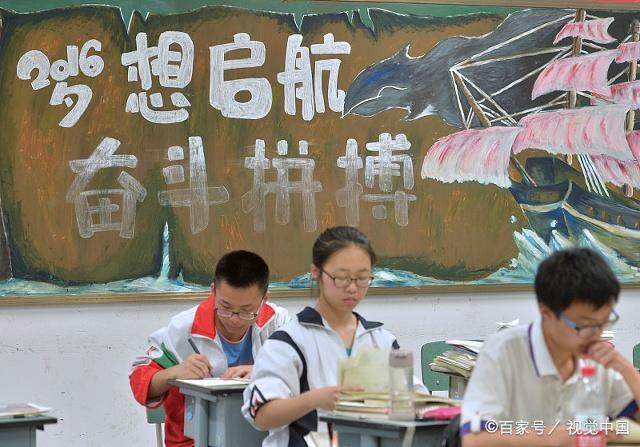 2016
梦想启航
奋斗拼搏
©百家号／视觉中国